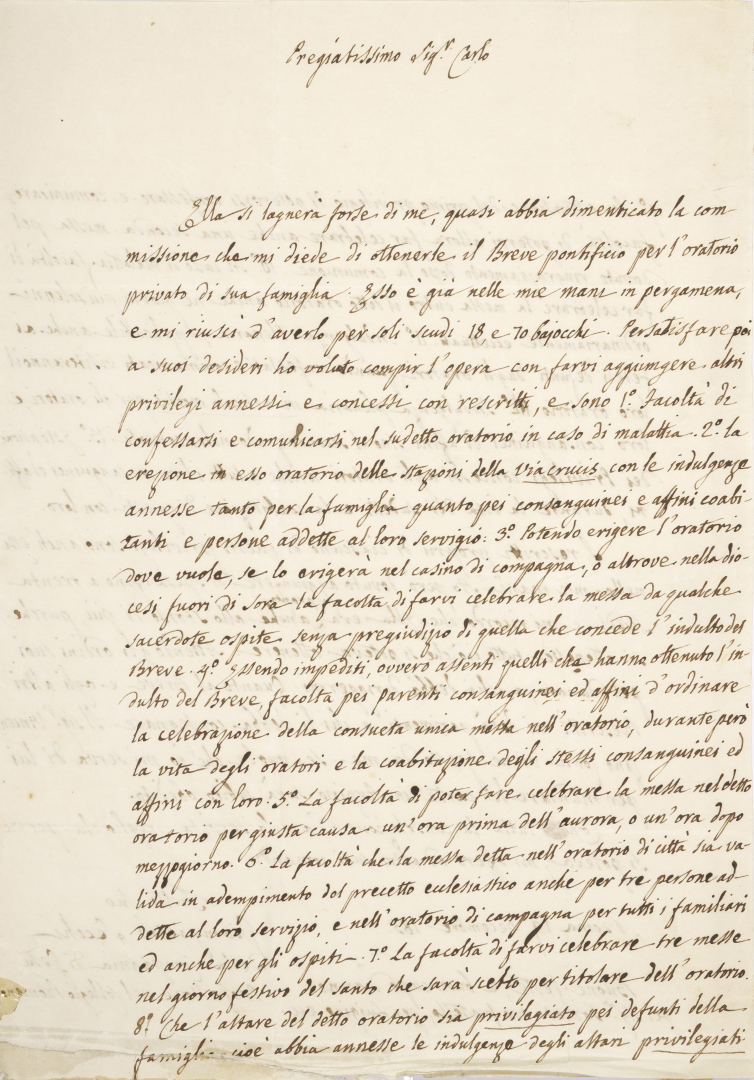 Pregiatissimo Sigr. Carlo
Ella si lagnerà forse di me, quasi abbia dimenticato la com
missione che mi diede di ottenerle il Breve pontificio per l'oratorio
privato di sua famiglia. Esso è già nelle mie mani in pergamena,
e mi riuscì d'averlo per soli scudi 18, e 70 bajocchi. Per sadisfare poi
a suoi desideri ho voluto compir l'opera con farvi aggiungere altri
privilegi annessi e concessi con rescritti, e sono 1.º Facoltà di
confessarsi e comunicarsi nel sudetto oratorio in caso di malattia. 2.º la
erezione in esso oratorio delle stazioni della via crucis con le indulgenze
annesse tanto per la famiglia quanto pei consanguinei e affini coabi-
tanti e persone addette al loro servigio: 3.º Potendo erigere l'oratorio
dove vuole, se lo erigerà nel casino di campagna, o altrove nella dio-
cesi fuori di Sora la facoltà di farvi celebrare la messa da qualche
sacerdote ospite senza pregiudizio di quella che concede l'indulto del
Breve. 4.º Essendo impediti, ovvero assenti quelli che hanno ottenuto l'in-
dulto del Breve, facoltà pei parenti consanguinei ed affini d'ordinare
la celebrazione della consueta unica messa nell'oratorio, durante però
la vita degli oratori e la coabitazione degli stessi consanguinei ed
affini con loro. 5.º La facoltà di poter fare celebrare la messa nel detto
oratorio per giusta causa un'ora prima dell'aurora, o un'ora dopo
mezzogiorno. 6.º La facoltà che la messa detta nell'oratorio di città sia va
lida in adempimento del precetto ecclesiastico anche per tre persone ad
dette al loro servizio, e nell'oratorio di campagna per tutti i familiari
ed anche per gli ospiti. 7.º La facoltà di farvi celebrare tre messe
nel giorno festivo del santo che sarà scelto per titolare dell'oratorio.
8.º Che l'altare del detto oratorio sia privilegiato pei defunti della
famiglia cioè abbia annesse le indulgenze degli altari privilegiati